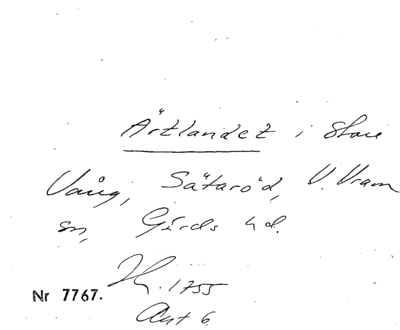 Ärtlandet i Stora
Vång, Sätaröd, V. Vram
sn, Gärds hd.
Nr 7767.
1755
Akt 6